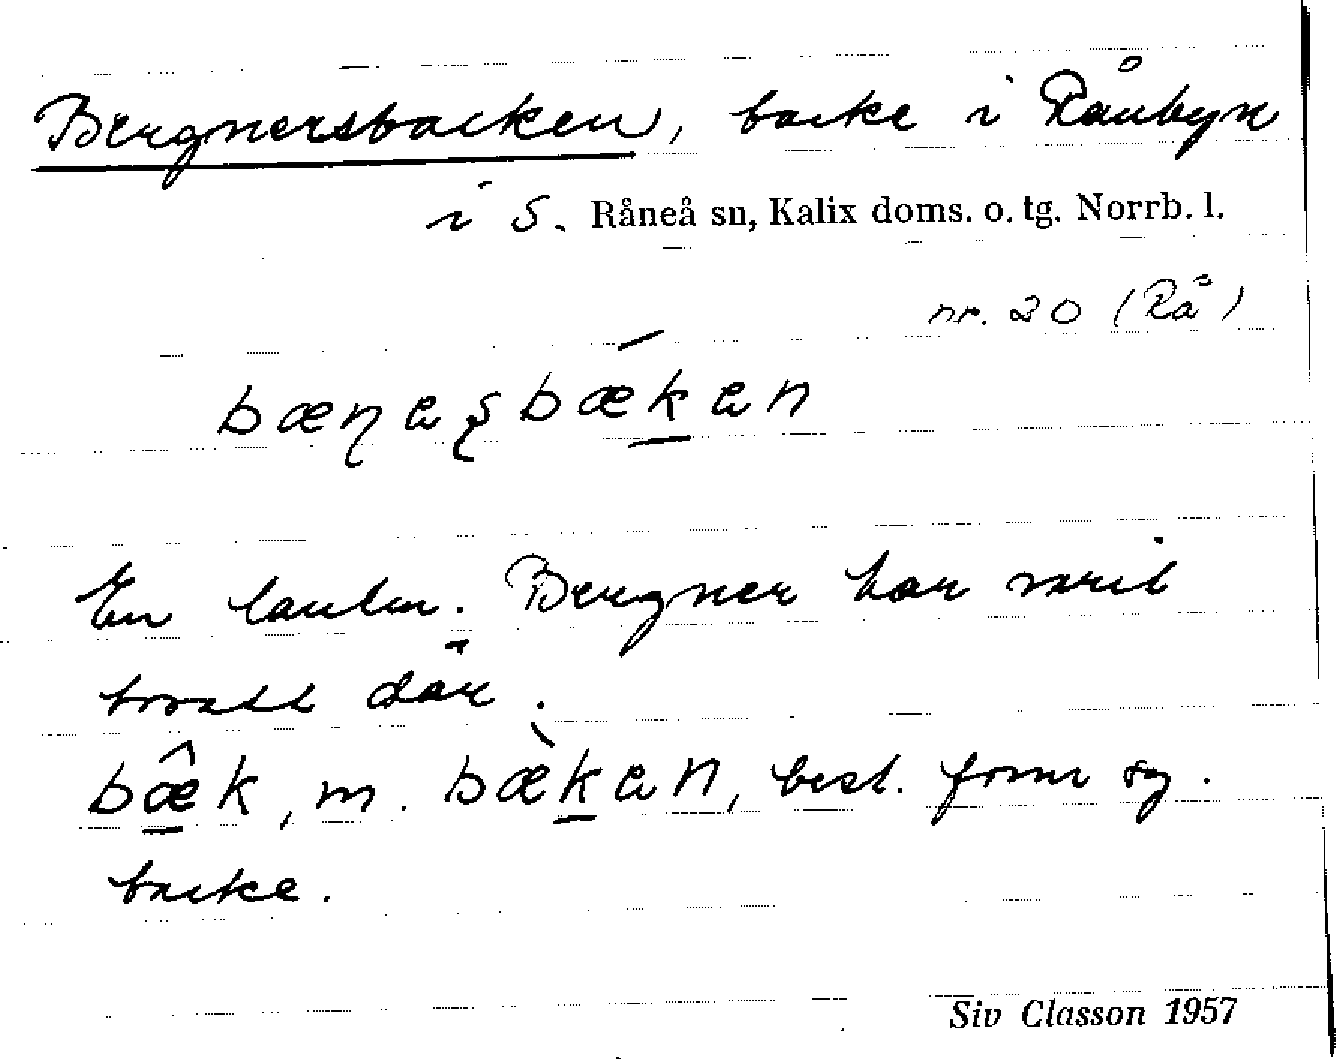 Bergnersbacken, backe i Rånbyn
i S. Råneå sn, Kalix doms. o. tg. Norrb. l.
nr. 20 (Rå)
bæɳaʂbǽkan
En lantm. Bergner har varit
bosatt där.
bæ̂k, m. bæ̀kan, best. form sg.
backe.
Siv Classon 1957